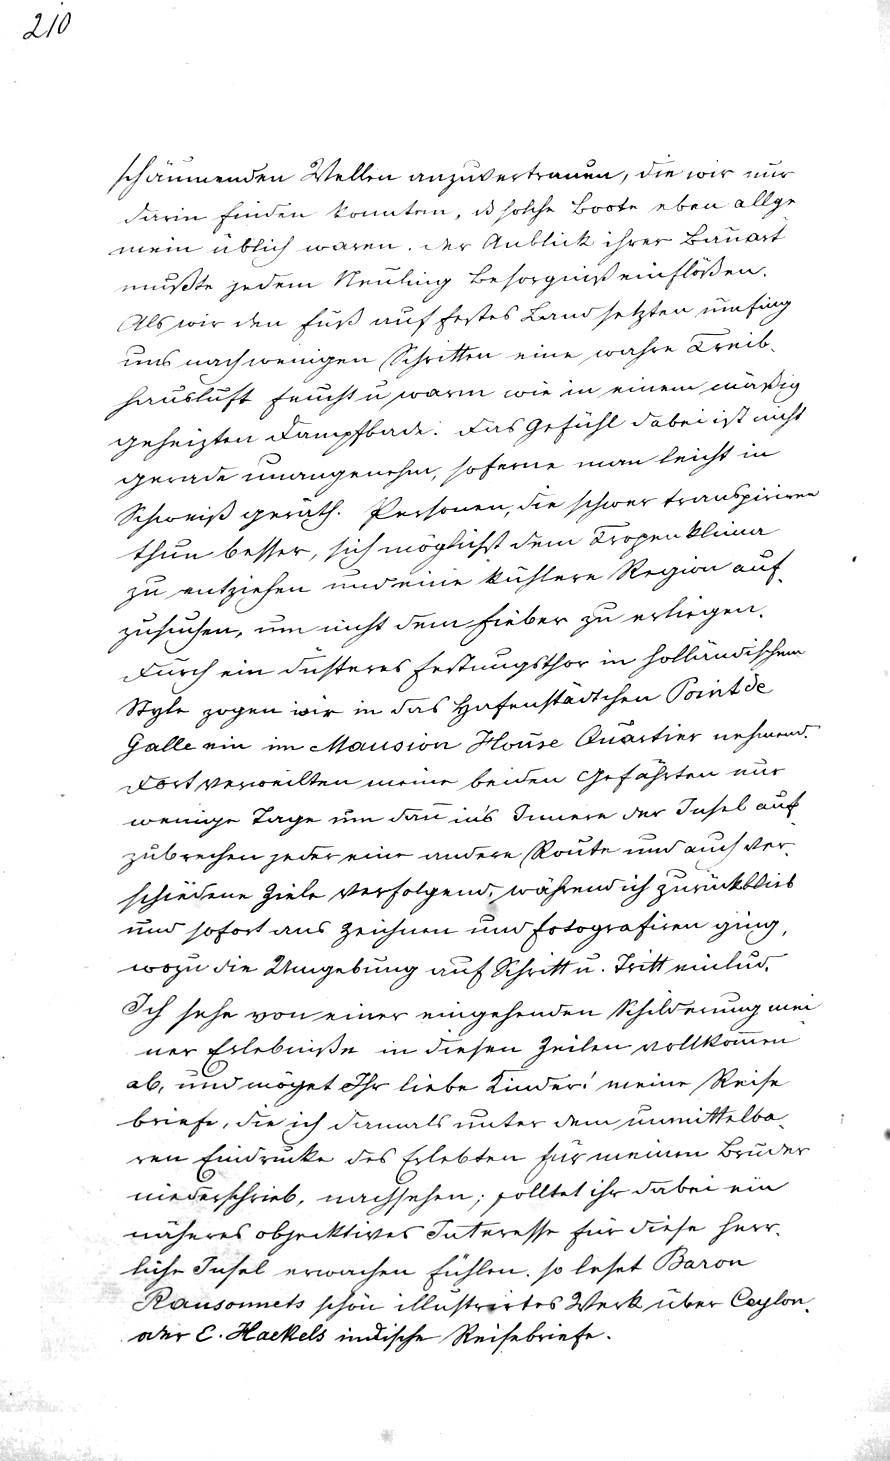 210
schäumenden Wellen anzuvertrauen, die wir nur
darin finden konnten, ds solche Boote eben allge
mein üblich waren. Der Anblick ihrer Bauart
mußte jedem Neuling Besorgniß einflößen.
Als wir den Fuß auf festes Land setzten umfing
uns nach wenigen Schritten eine wahre Treib-
hausluft feucht u warm wie in einem mäßig
geheizten Dampfbade. Das Gefühl dabei ist nicht
gerade unangenehm, soferne man leicht in
Schweiß geräth. Personen, die schwer transpiriren
thun besser, sich möglichst dem Tropenklima
zu entziehen und eine kühlere Region auf-
zusuchen, um nicht dem Fieber zu erliegen.
Durch ein düsteres Festungsthor in holländischem
Style zogen wir in das Hafenstädtchen Point de
Galle ein im Mansion House Quartier nehmend.
Dort verweilten meine beiden Gefährten nur
wenige Tage um dan̄ in's Innere der Insel auf-
zubrechen jeder eine andere Route und auch ver-
schiedene Ziele verfolgend, während ich zurückblieb
und sofort ans Zeichnen und Fotografiren ging,
wozu die Umgebung auf Schritt u. Tritt einlud.
Ich sehe von einer eingehenden Schilderung mei
ner Erlebniße in diesen Zeilen vollkom̄en
ab, und möget Ihr liebe Kinder! meine Reise
briefe, die ich damals unter dem unmittelba-
ren Eindrucke des Erlebten für meinen Bruder
niederschrieb, nachsehen; solltet ihr dabei ein
näheres objecktives Interesse für diese herr-
liche Insel erwachen fühlen. so leset Baron
Ransonnets schön illustrirtes Werk über Ceylon.
oder E. Haekels indische Reisebriefe.